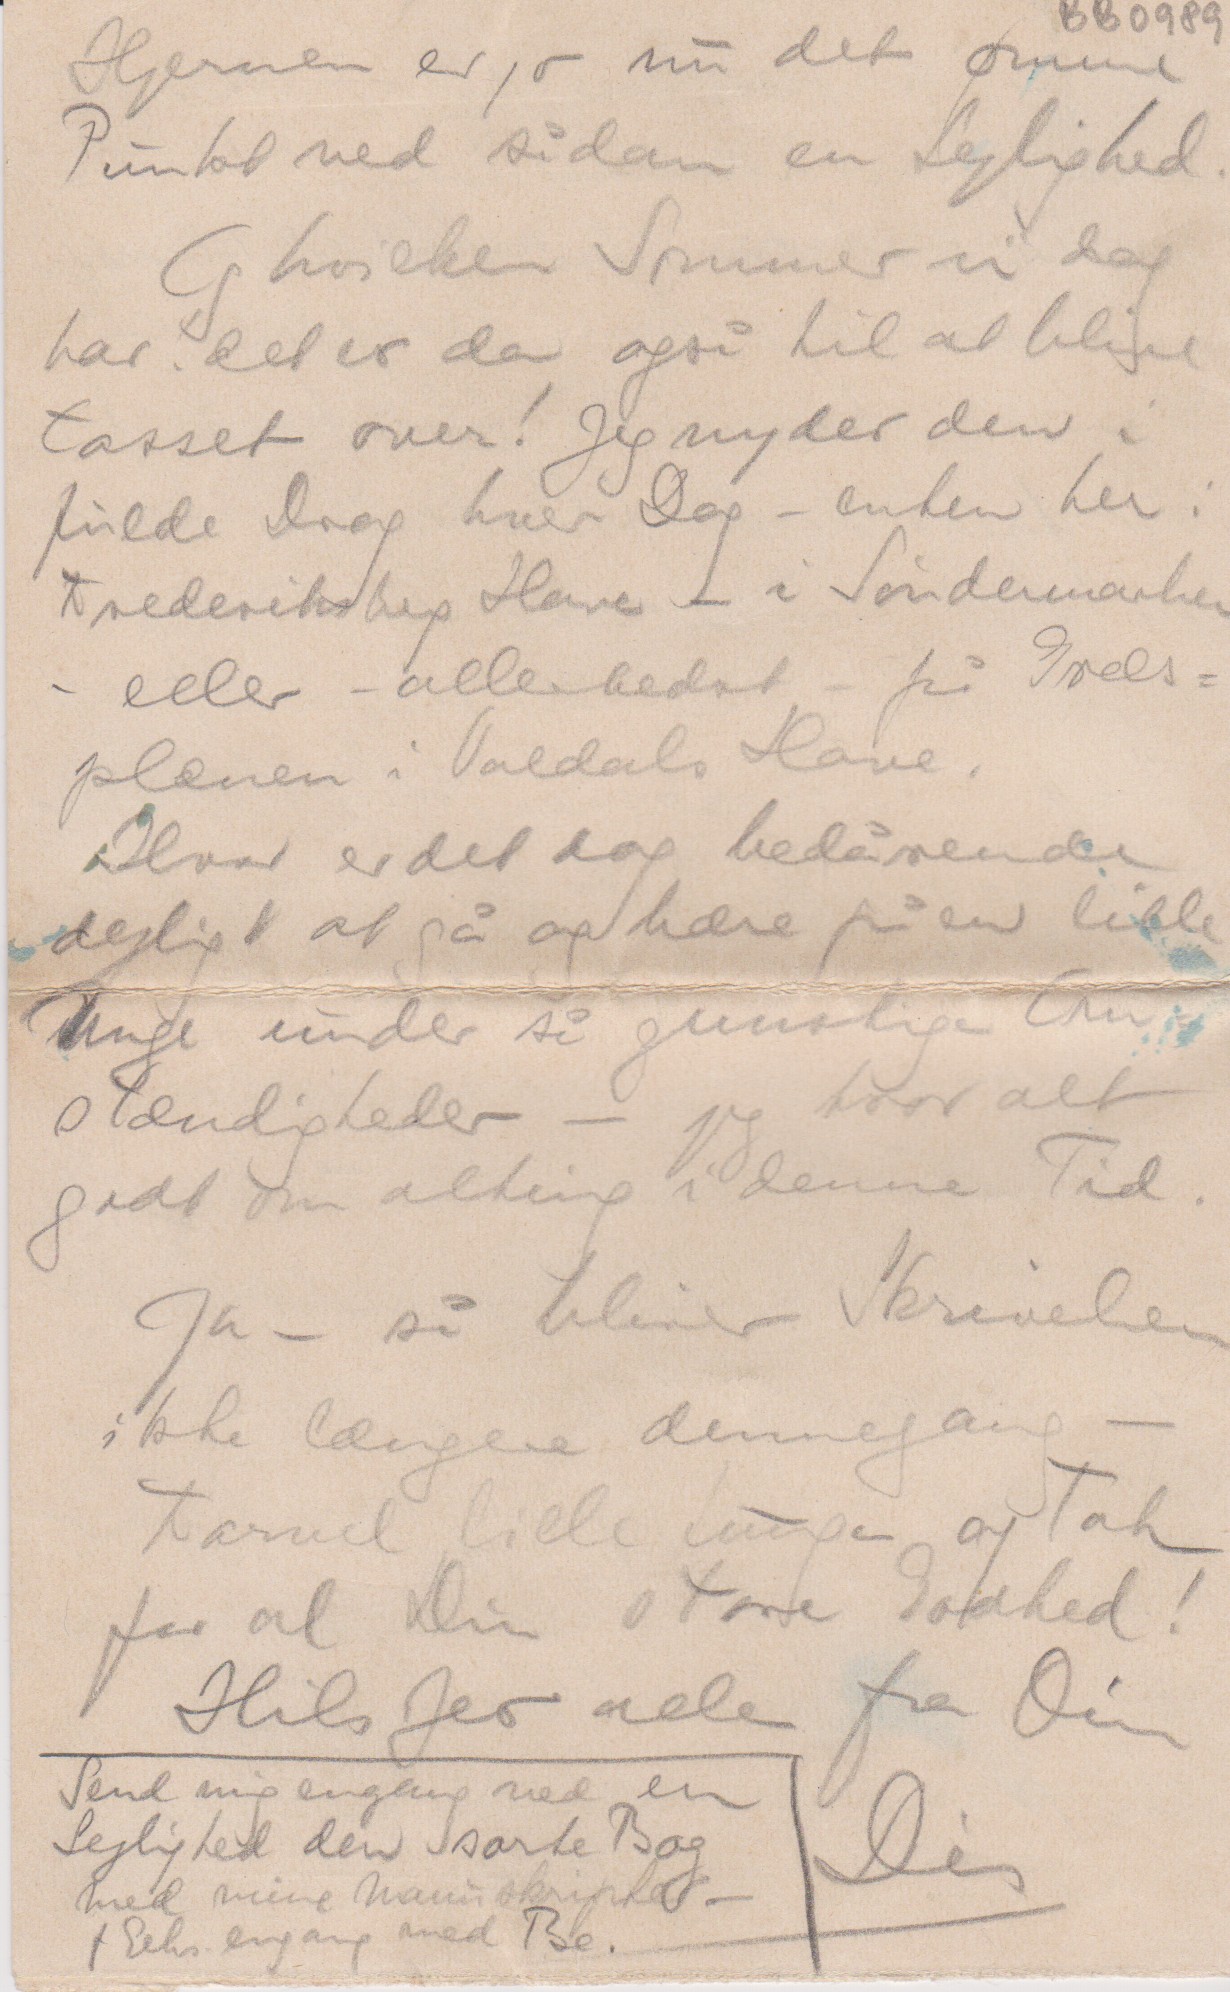 BB0989
Hjernen er jo nu det ømme
Punkt ved sådan en Lejlighed.
Og hvilken Sommer vi dog
har! det er da også til at blive
tosset over! Jeg nyder den i
fulde Drag hver Dag – enten her i
Frederiksbeg Have – i Søndermarken
– eller – allerbedst – på Græs=
plænen i Valdals Have.
Hvor er det dog bedårende
dejligt at gå og bære på en lille
Unge under så gunstige Om=
stændigheder – jeg tror alt
godt om alting i denne Tid.
Ja – så bliver Skrivelsen
ikke længere dennegang –
Farvel lille Lugge og Tak
for al Din store Godhed!
Hils Jer alle fra Din
Dis
Send mig engang ved en
Lejlighed den sorte Bog
med mine Manuskripter –
f Eks. engang med Be.